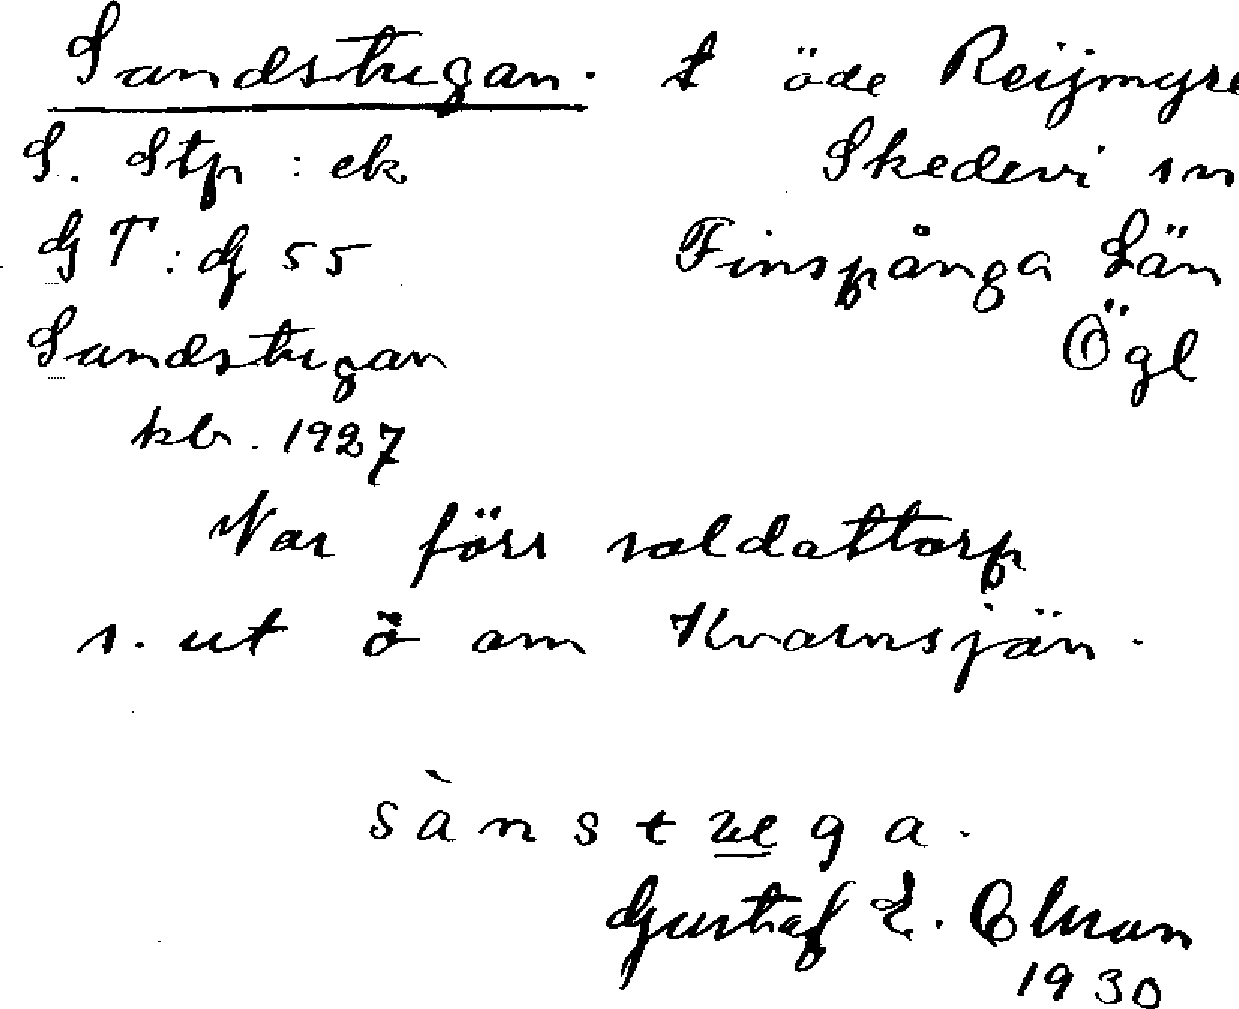 Sandstugan. t öde Reijmyre
S. Stp : ek Skedevi sn
GT : G 55 Finspånga Län
Sandstugan Ögl
kb. 1927
Var förr soldattorp
s. ut ö om Kvarnsjön.
sànstuga.
Gustaf E.
1930